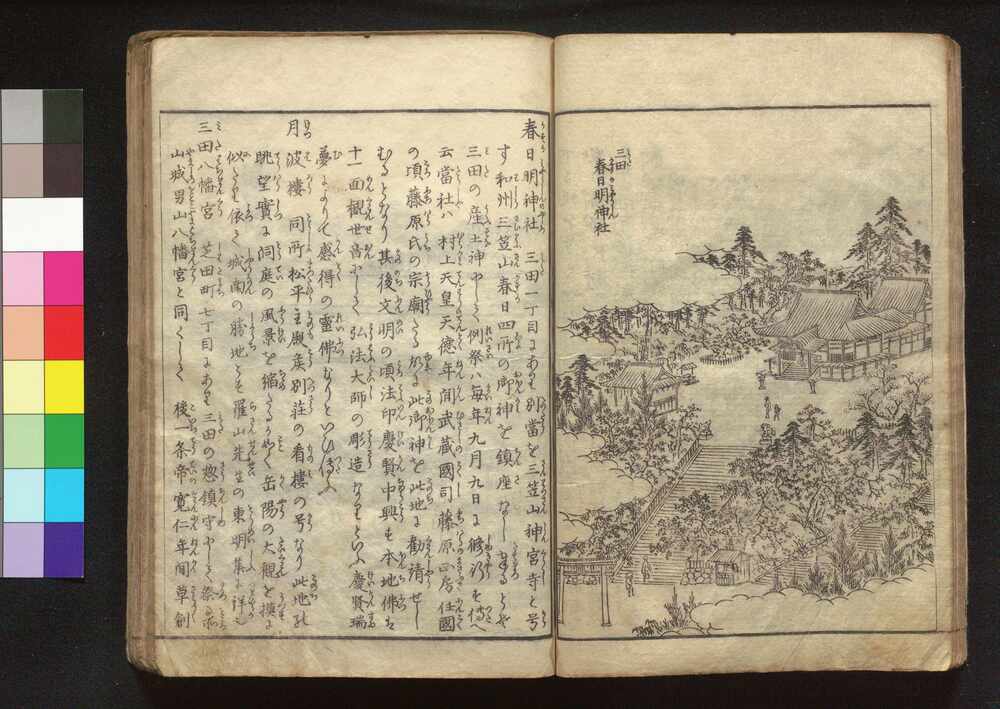 三田
春日明神社
春日明神社 三田一丁目にあり別當を三笠山神宮寺と号
す和州三笠山春日四所の御神を鎮座なし
三田の産土神にして例祭ハ毎年九月九日に修行を
云當社ハ村上天皇天徳年間武蔵國司藤原
の頃藤原氏の宗廟たる故に此御神を此地に勧請せし
むるとなり其後文明の頃法印慶賢中興も本地佛は
十一面観世音にして弘法大師の彫造なりといふ慶賢瑞
夢によりて感得の霊佛なりといひ傳ふ
月波樓 同所松平主殿矦別荘の看樓の号なり此地の
眺望實に洞庭の風景を縮たるか如く岳陽の大観を摸に
似たり依て城南の勝地とす羅山先生の東明集に詳也
三田八幡宮 芝田町七丁目にあり三田の惣鎮守にして祭
山城男山八幡宮と同しく 後一条帝寛仁年間草創